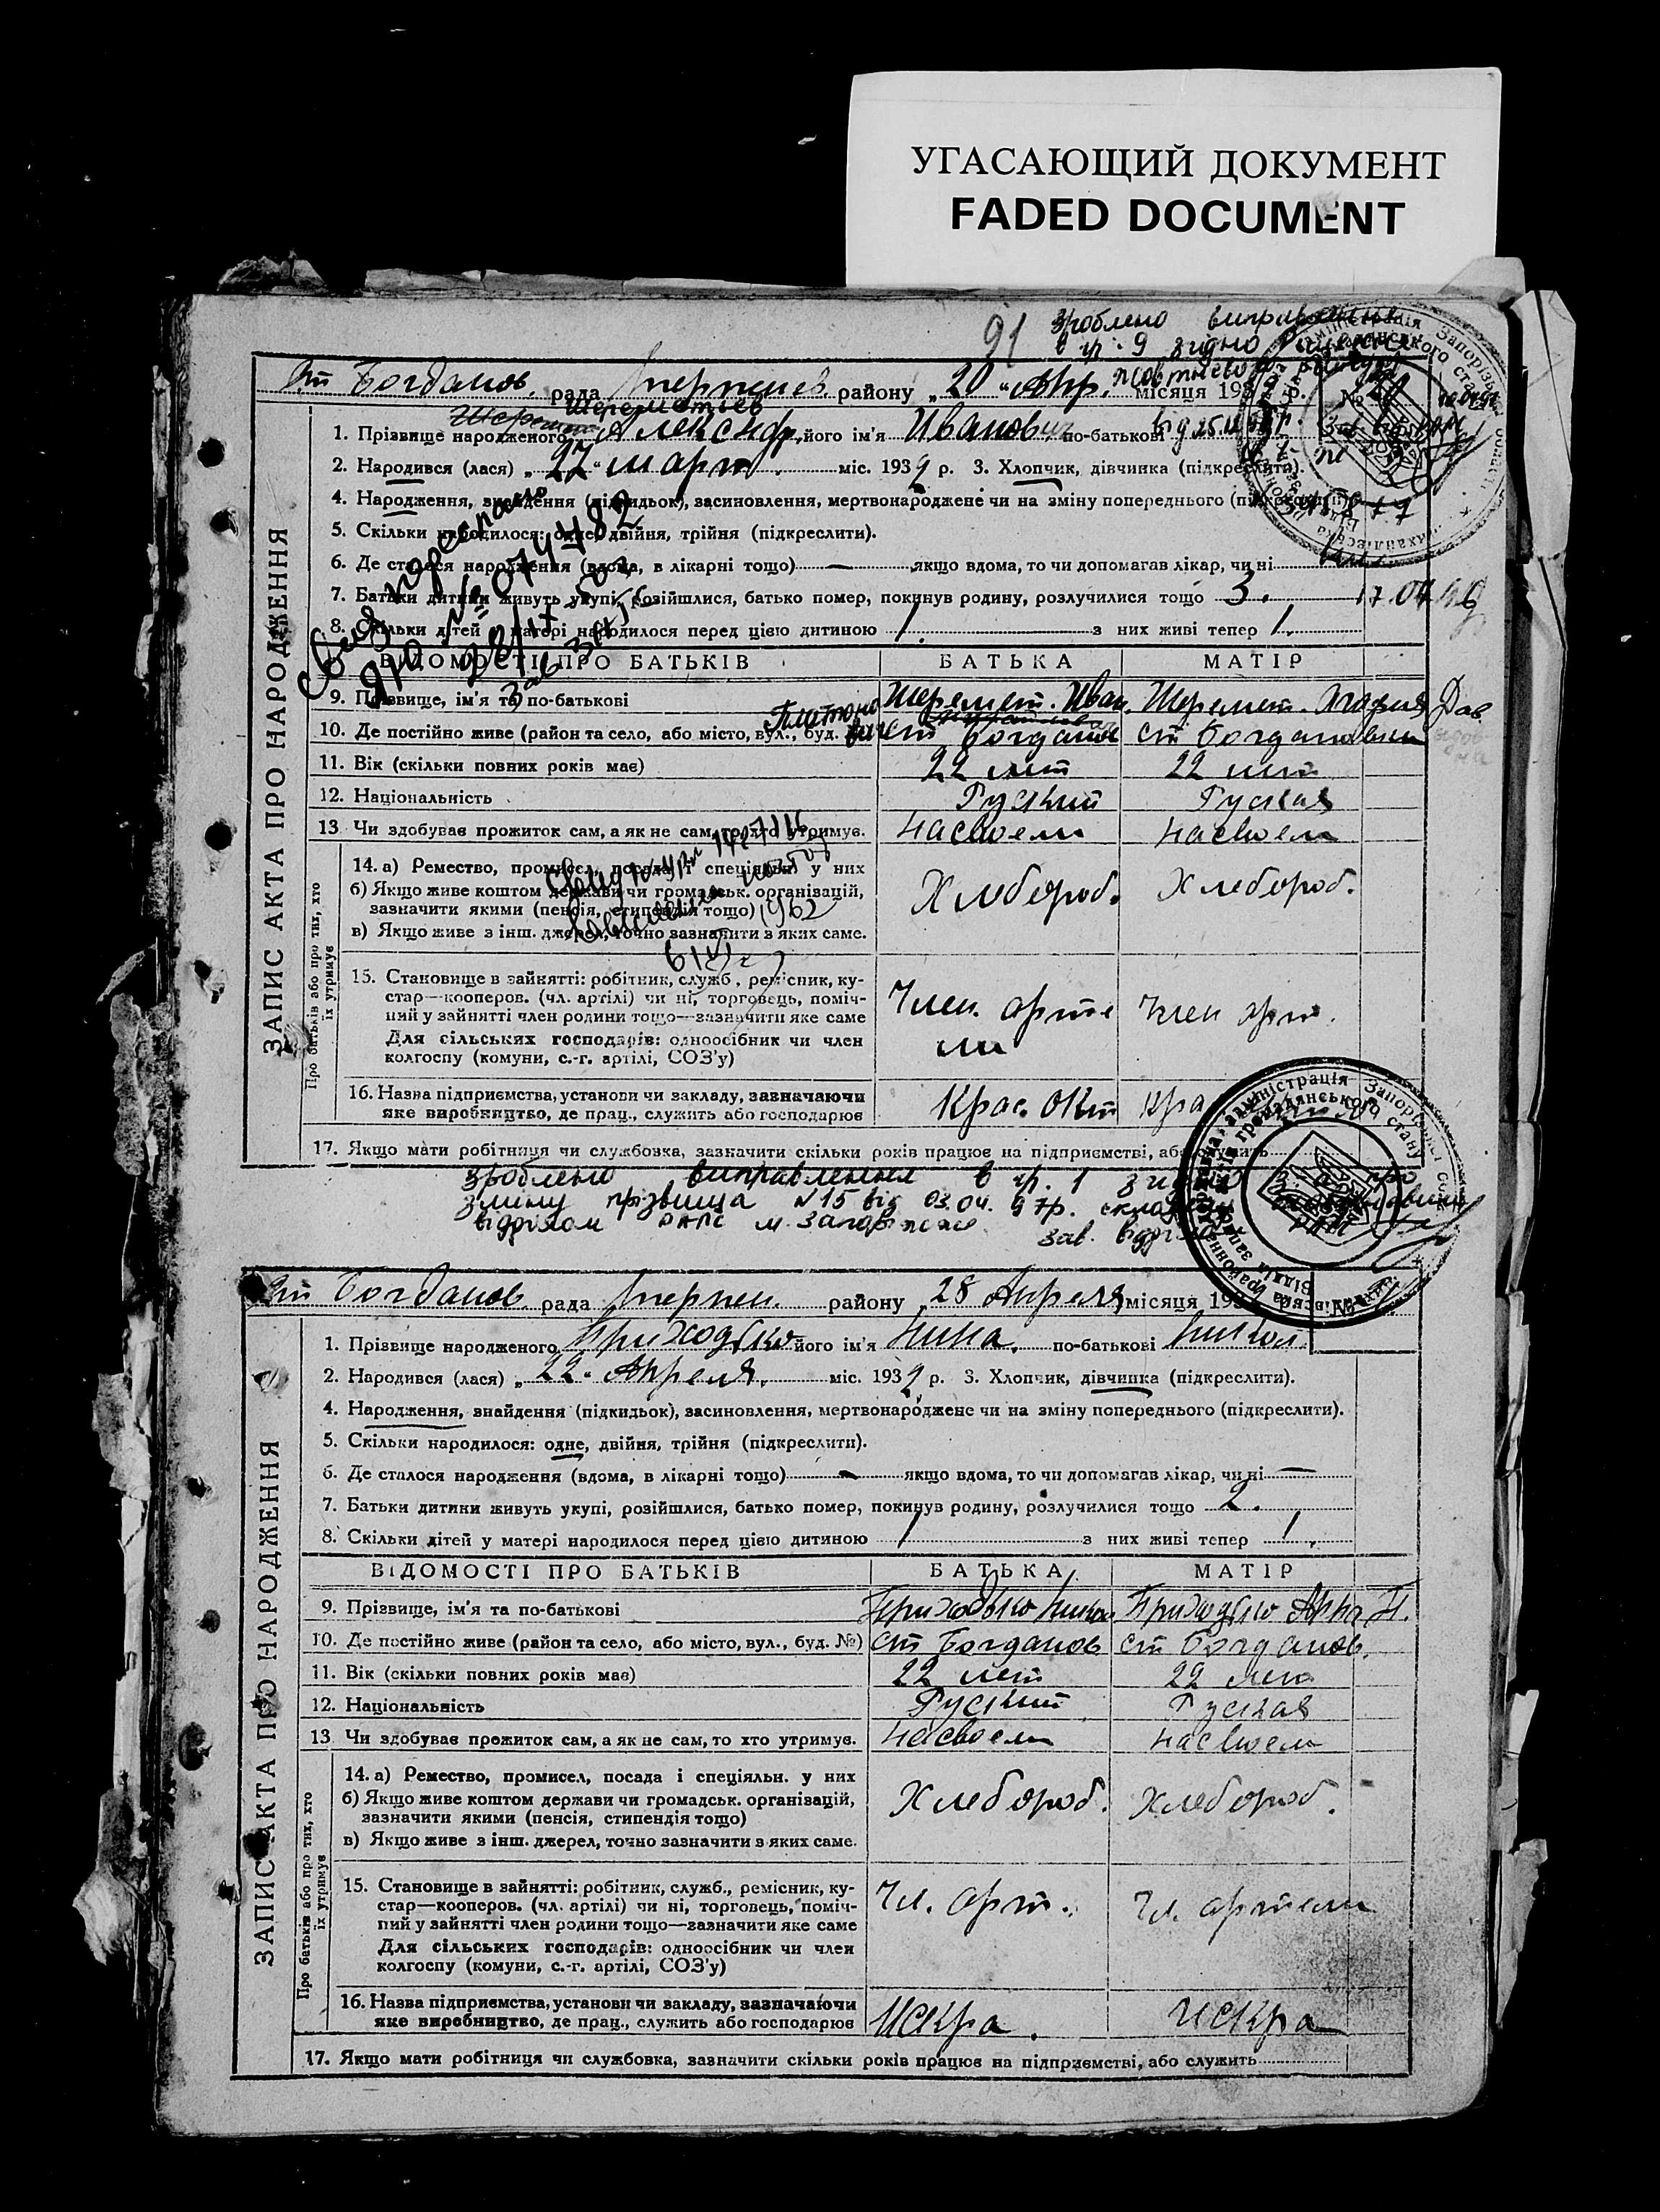 УГАСАЮЩИЙ ДОКУМЕНТ
FADED DOCUMENT
91 Зроблено виправлення
в гр. 9 згідно рішення
Богданов. рада район у „20“ Апр. місяця 193 р. №
Шереметьєв
1. Прізвище народженого Александр його ім'я Иванович по-батькові
2. Народився (лася) „27“ март. міс. 1932 р. 3. Хлопчик, дівчинка (підкреслити).
4. Народження, знайдення (підкидьок), засиновлення, мертвонароджене чи на зміну попереднього (підкреслити).
5. Скільки народилося: одне, двійня, трійня (підкреслити).
6. Де сталося народження (вдома, в лікарні тощо) — якщо вдома, то чи допомагав лікар, чи ні
7. Батьки дитини живуть укупі, розійшлися, батько помер, покинув родину, розлучилися тощо 3. 17.04.
8. Скільки дітей у матері народилося перед цією дитиною 1. з них живі тепер 1.
ВІДОМОСТІ ПРО БАТЬКІВ БАТЬКА МАТІР
9. Прізвище, ім'я та по-батькові Шеремет. Иван. Шеремет. Дав.
Платоно
10. Де постійно живе (район та село, або місто, вул., буд. ст Богданов ст Богдановки
11. Вік (скільки повних років має) 22 лет 22 лет
12. Національність Руский Руская
13. Чи здобуває прожиток сам, а як не сам, то хто утримує. насвоем насвоем
14. а) Ремество, промисел, посада і спеціяльн. у них
б) Якщо живе коштом держави чи громадськ. організацій,
зазначити якими (пенсія, стипендія тощо) 1962
в) Якщо живе з інш. джерел, точно зазначити з яких саме.
Хлебороб. Хлебороб.
15. Становище в зайнятті: робітник, служб., ремісник, ку-
стар—кооперов. (чл. артілі) чи ні, торговець, поміч-
ний у зайнятті член родини тощо—зазначити яке саме
Для сільських господарів: одноосібник чи член
колгоспу (комуни, с.-г. артілі, СОЗ'у)
Член. арте
ли
Член арт.
16. Назва підприємства, установи чи закладу, зазначаючи
яке виробництво, де прац., служить або господарює
Крас. Окт кра
17. Якщо мати робітниця чи службовка, зазначити скільки років працює на підприємстві, або служить
ЗАПИС АКТА ПРО НАРОДЖЕННЯ
Про батьків або про тих, хто
їх утримує
№ 074482
зроблено виправлення в гр. 1 згідно
зміну прізвища №15 від 03.04.97р.
відділом РАГС м. Запоріжжя зав.
Богданов. рада район у „28 Апреля місяця 193
1. Прізвище народженого Приходько його ім'я Нина. по-батькові Никол.
2. Народився (лася) „22“ Апреля. міс. 1932 р. 3. Хлопчик, дівчинка (підкреслити).
4. Народження, знайдення (підкидьок), засиновлення, мертвонароджене чи на зміну попереднього (підкреслити).
5. Скільки народилося: одне, двійня, трійня (підкреслити).
6. Де сталося народження (вдома, в лікарні тощо) — якщо вдома, то чи допомагав лікар, чи ні —
7. Батьки дитини живуть укупі, розійшлися, батько помер, покинув родину, розлучилися тощо 2.
8. Скільки дітей у матері народилося перед цією дитиною 1 з них живі тепер 1.
ВІДОМОСТІ ПРО БАТЬКІВ БАТЬКА МАТІР
9. Прізвище, ім'я та по-батькові Приходько Никол Приходько Анна Н.
10. Де постійно живе (район та село, або місто, вул., буд. №) ст Богданов ст Богданов.
11. Вік (скільки повних років має) 22 лет 22 лет
12. Національність Руский Руская
13. Чи здобуває прожиток сам, а як не сам, то хто утримує. насвоем насвоем
14. а) Ремество, промисел, посада і спеціяльн. у них
б) Якщо живе коштом держави чи громадськ. організацій,
зазначити якими (пенсія, стипендія тощо)
в) Якщо живе з інш. джерел, точно зазначити з яких саме.
Хлебороб. Хлебороб.
15. Становище в зайнятті: робітник, служб., ремісник, ку-
стар—кооперов. (чл. артілі) чи ні, торговець, поміч-
ний у зайнятті член родини тощо—зазначити яке саме
Для сільських господарів: одноосібник чи член
колгоспу (комуни, с.-г. артілі, СОЗ'у)
Чл. арт. Чл. артели
16. Назва підприємства, установи чи закладу, зазначаючи
яке виробництво, де прац., служить або господарює
Искра. Искра
17. Якщо мати робітниця чи службовка, зазначити скільки років працює на підприємстві, або служить
ЗАПИС АКТА ПРО НАРОДЖЕННЯ
Про батьків або про тих, хто
їх утримує